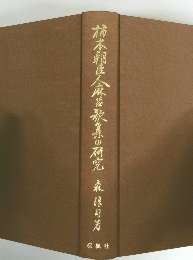 柿本朝臣人麻呂歌集の研究
森淳司著
桜楓社